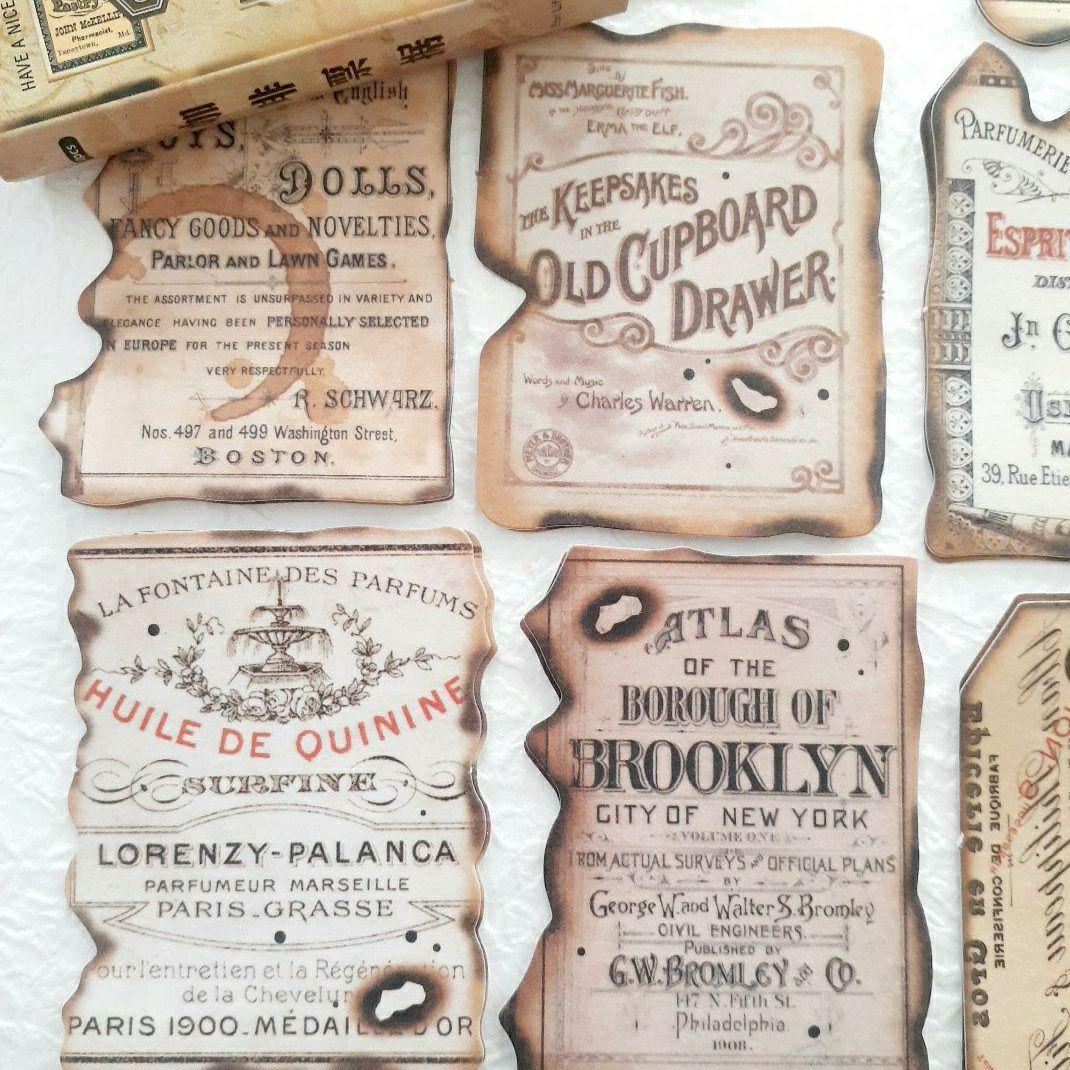 HAVE A NICE
Pastry
JOHN McKELLIP
Pharmacist,
Taneytown, Md.
PCS
English
TOYS,
DOLLS,
FANCY GOODS AND NOVELTIES,
PARLOR AND LAWN GAMES.
THE ASSORTMENT IS UNSURPASSED IN VARIETY AND
ELEGANCE HAVING BEEN PERSONALLY SELECTED
IN EUROPE FOR THE PRESENT SEASON
VERY RESPECTFULLY,
R. SCHWARZ.
Nos. 497 and 499 Washington Street,
BOSTON.
Sung by
MISS MARGUERITE FISH.
ERMA THE ELF.
THE KEEPSAKES
IN THE
OLD CUPBOARD
DRAWER.
Words and Music
by Charles Warren.
PARFUMERIE
ESPRIT
DIST
In
USI
MA
39, Rue Etie
LA FONTAINE DES PARFUMS
HUILE DE QUININE
SURFINE
LORENZY-PALANCA
PARFUMEUR MARSEILLE
PARIS-GRASSE
our l'entretien et la Régén on
de la Chevelur
PARIS 1900-MÉDAIL D'OR
ATLAS
OF THE
BOROUGH OF
BROOKLYN
CITY OF NEW YORK
VOLUME ONE
FROM ACTUAL SURVEYS AND OFFICIAL PLANS
BY
George W. and Walter S. Bromley
CIVIL ENGINEERS
PUBLISHED BY
G.W. BROMLEY AND CO.
147 N. Fifth St.
Philadelphia
1908.
FABRIQUE DE CONFISERIE